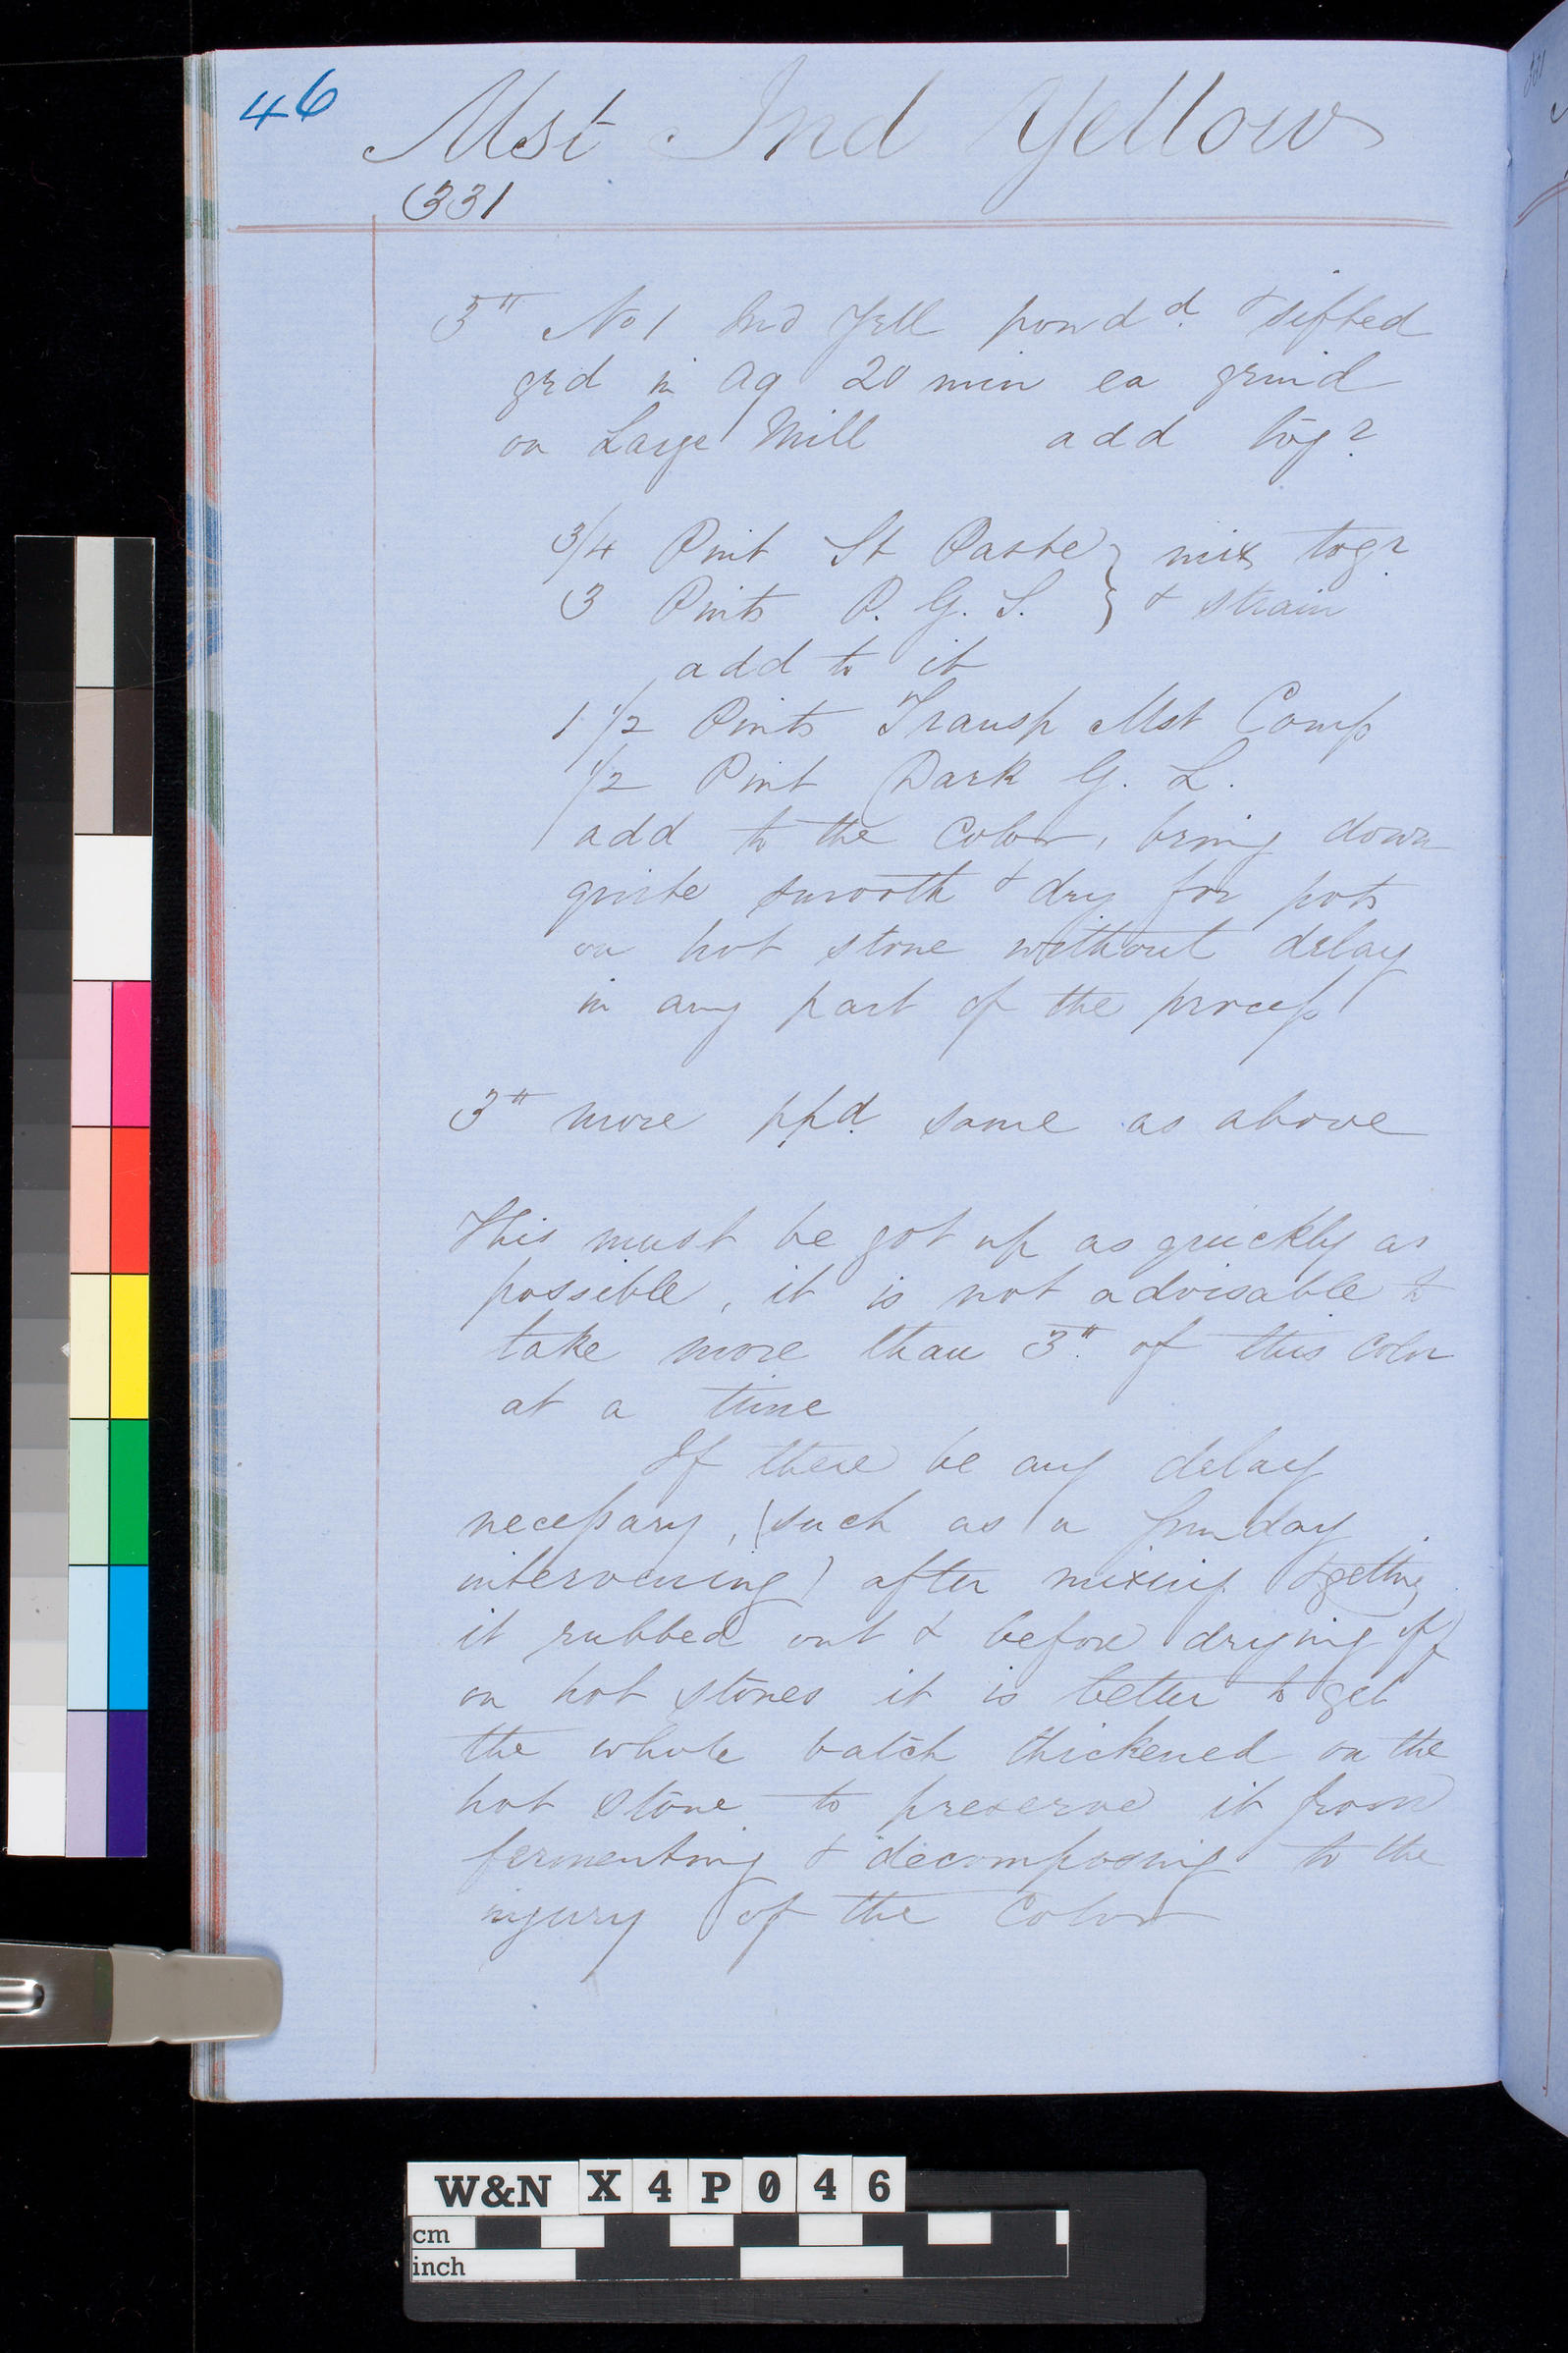 46
Mst Ind Yellow
331
3" No 1 Ind Yell powdd. & sifted
grd in Aq 20 min ea grind
on Large Mill add togr
3/4 Pint St Paste } mix togr
3 Pints P. G. S. } & strain
add to it
1 1/2 Pints Transp Mst Comp
1/2 Pint Dark G. L.
add to the color, bring down
quite smooth & dry for pots
on hot stone without delay
in any part of the process
3" more ppd. same as above
This must be got up as quickly as
possible, it is not advisable to
take more than 3". of this color
at a time
If there be any delay
necessary, (such as a Sunday
intervening) after mixing & getting
it rubbed out & before drying off
on hot stones it is better to get
the whole batch thickened on the
hot stone to preserve it from
fermenting & decomposing to the
injury of the Color
W&N X4P046
cm
inch